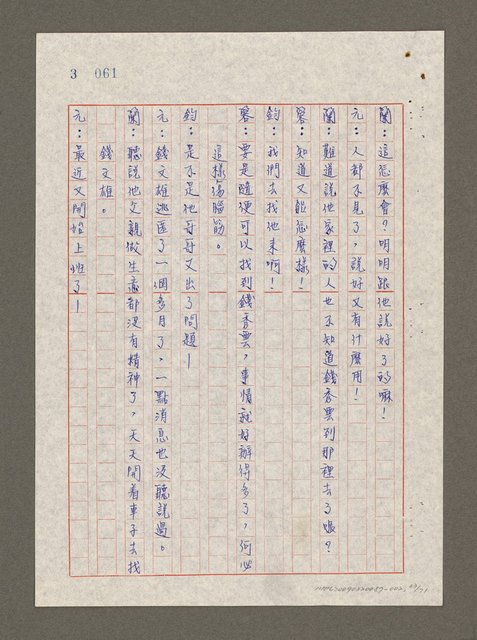 3 061
蘭：這怎麼會？明明跟他說好了的嘛！
元：人都不見了，說好又有什麼用！
蘭：難道說他家裡的人也不知道錢秀雲到那裡去了嗎？
蓉：知道又能怎麼樣！
鈞：我們去找他来啊！
蓉：要是隨便可以找到錢秀雲，事情就好辦得多了，何必
這樣傷腦筋。
鈞：是不是他哥哥又出了問題—
元：錢文雄逃匿了一個多月了，一點消息也没聽說過。
蘭：聽說他父親做生意都没有精神了，天天開着車子去找
錢文雄。
元：最近又開始上班了—